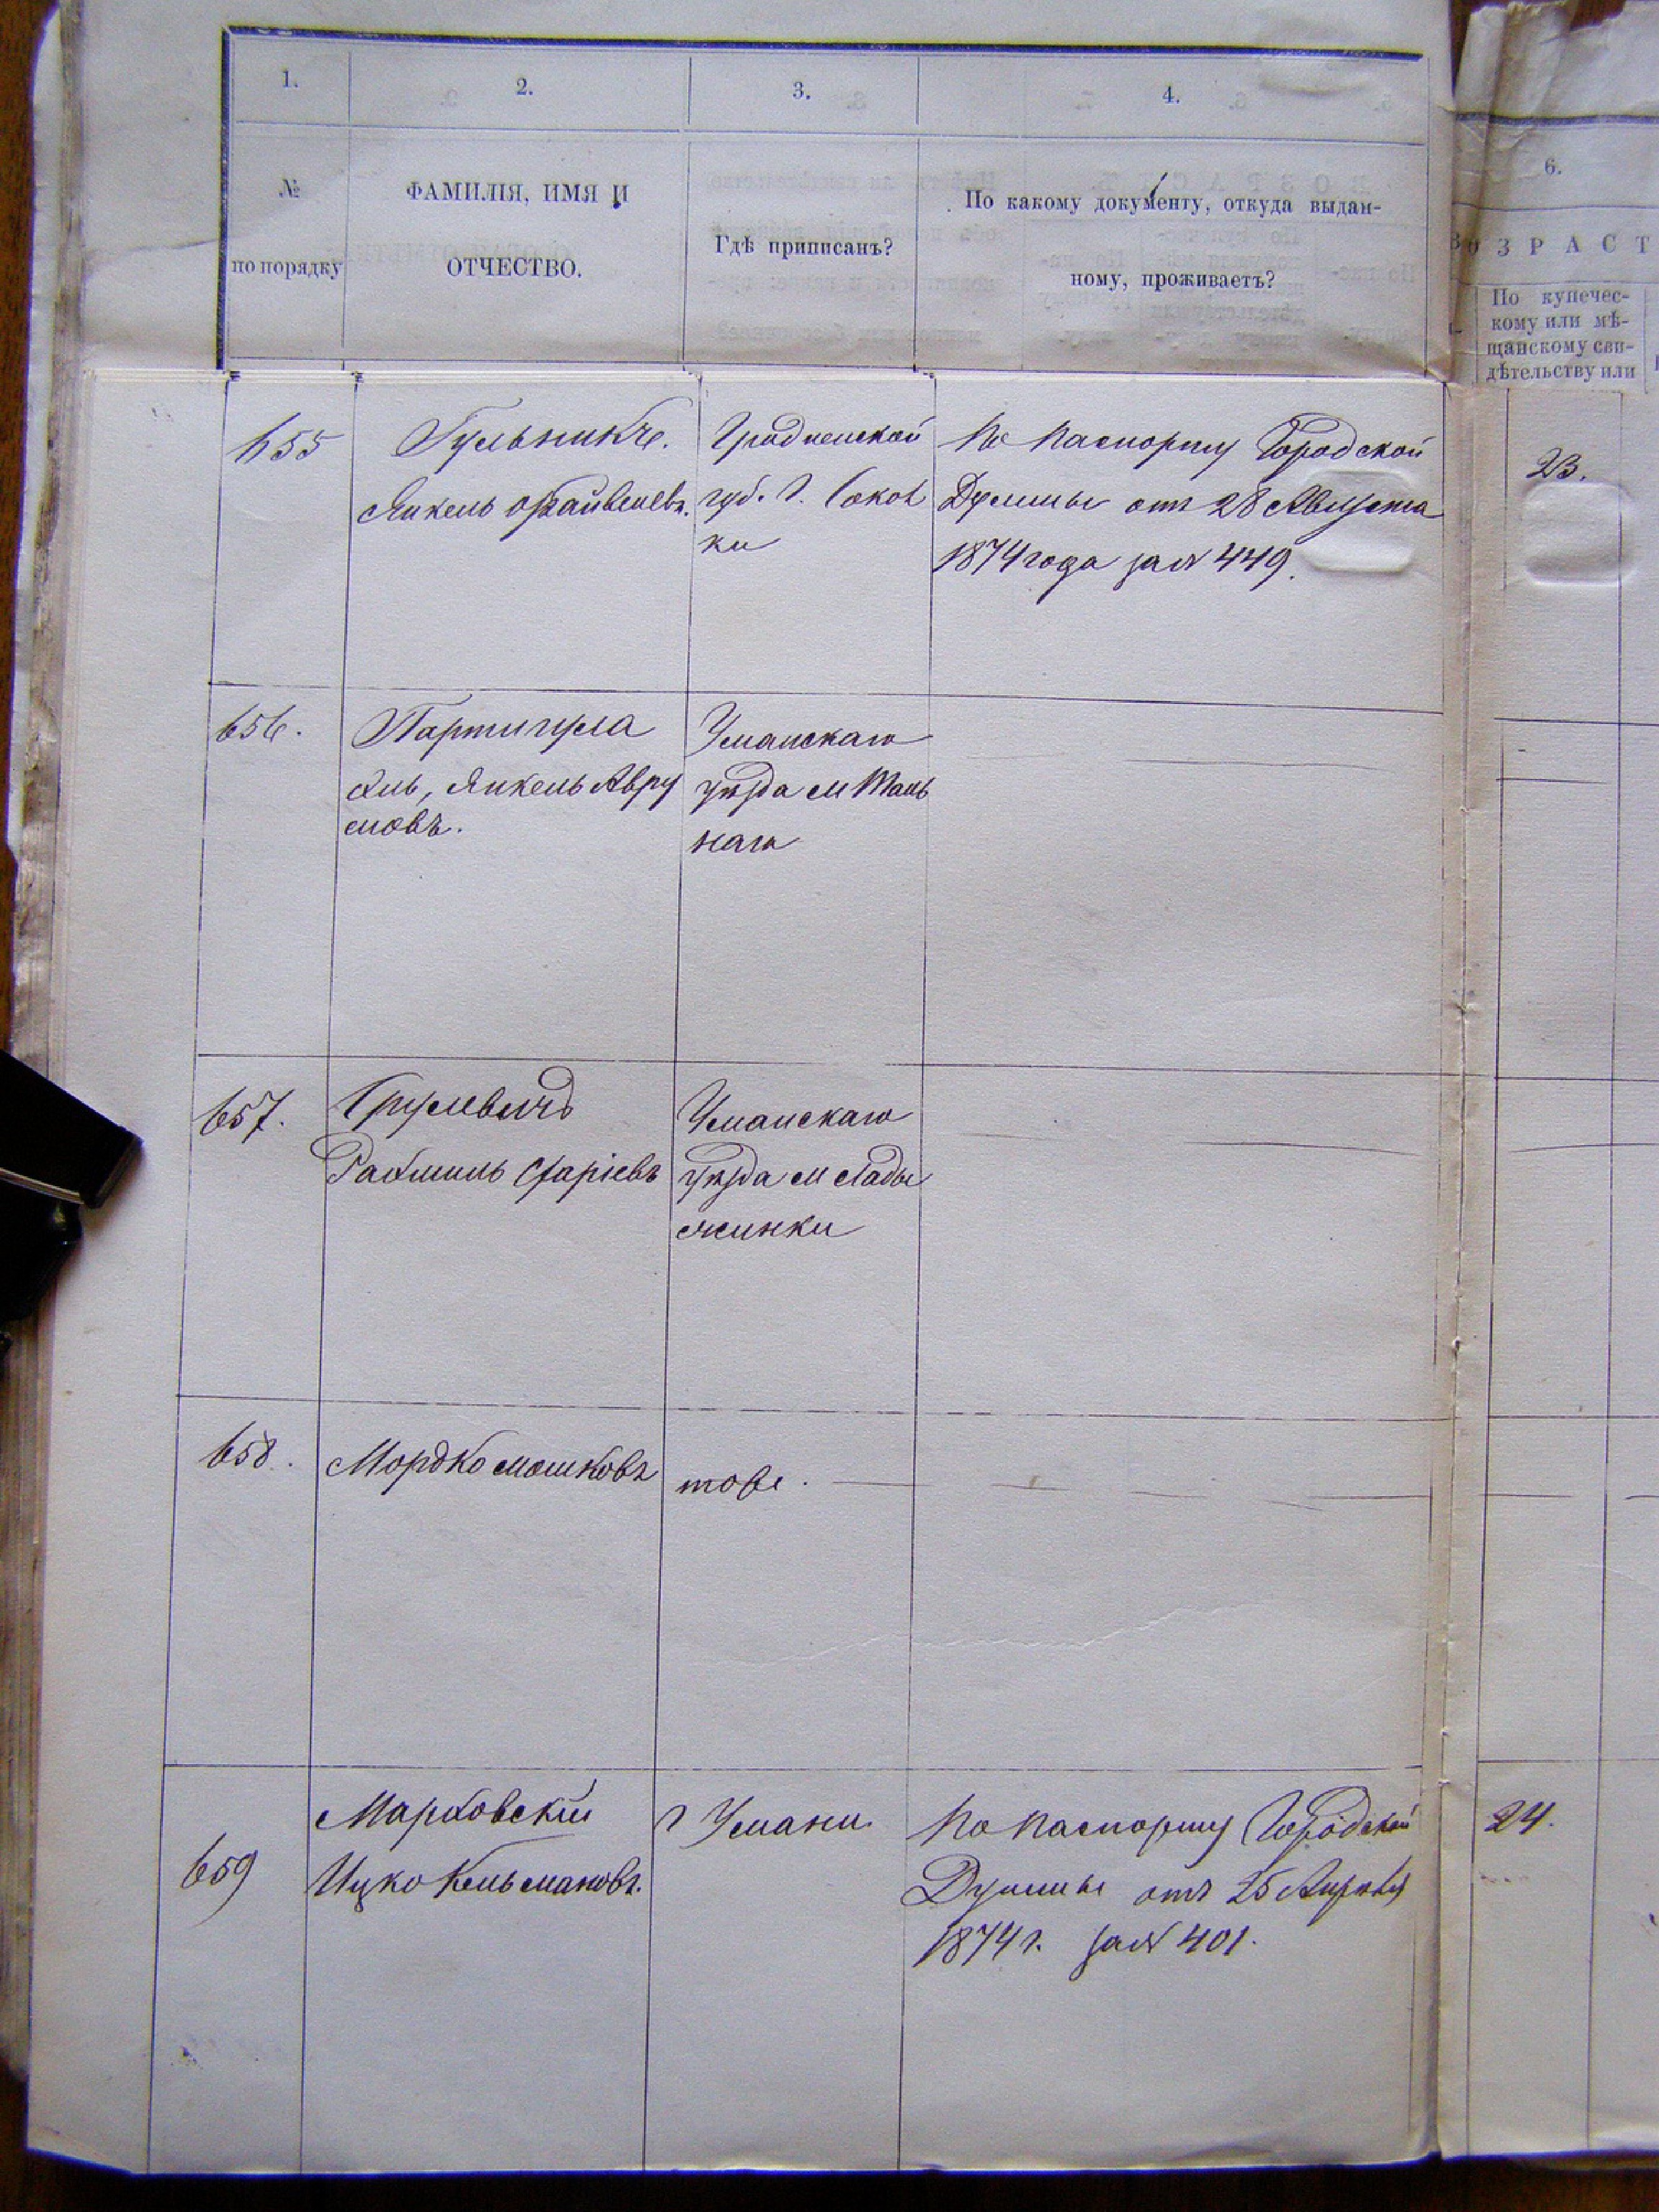 1.
2.
3.
4.
6.
№
по порядку
ФАМИЛІЯ, ИМЯ И
ОТЧЕСТВО.
Гдѣ приписанъ?
По какому документу, откуда выдан-
ному, проживаетъ?
ВОЗРАСТ
По купечес-
кому или мѣ-
щанскому сви-
дѣтельству или
655
Янкель
Гродненской
губ. г. Сокол
ки
По паспорту Городской
Думмы отъ 28 Августа
1874 года за № 449.
23.
656.
Портигула
Хиль, Янкель Авру
мовъ.
Уманскаго
уѣзда м Таль
наго
657.
Срулевичъ
Рахмиль
Уманскаго
уѣзда м Лады
жинки
658.
Мордко Мошковъ
тоже.
659
Марховскій
Ицко Кельмановъ.
г Умани.
По паспорту Городской
Думмы отъ 25 Апрѣля
1874 г. за № 401.
24.